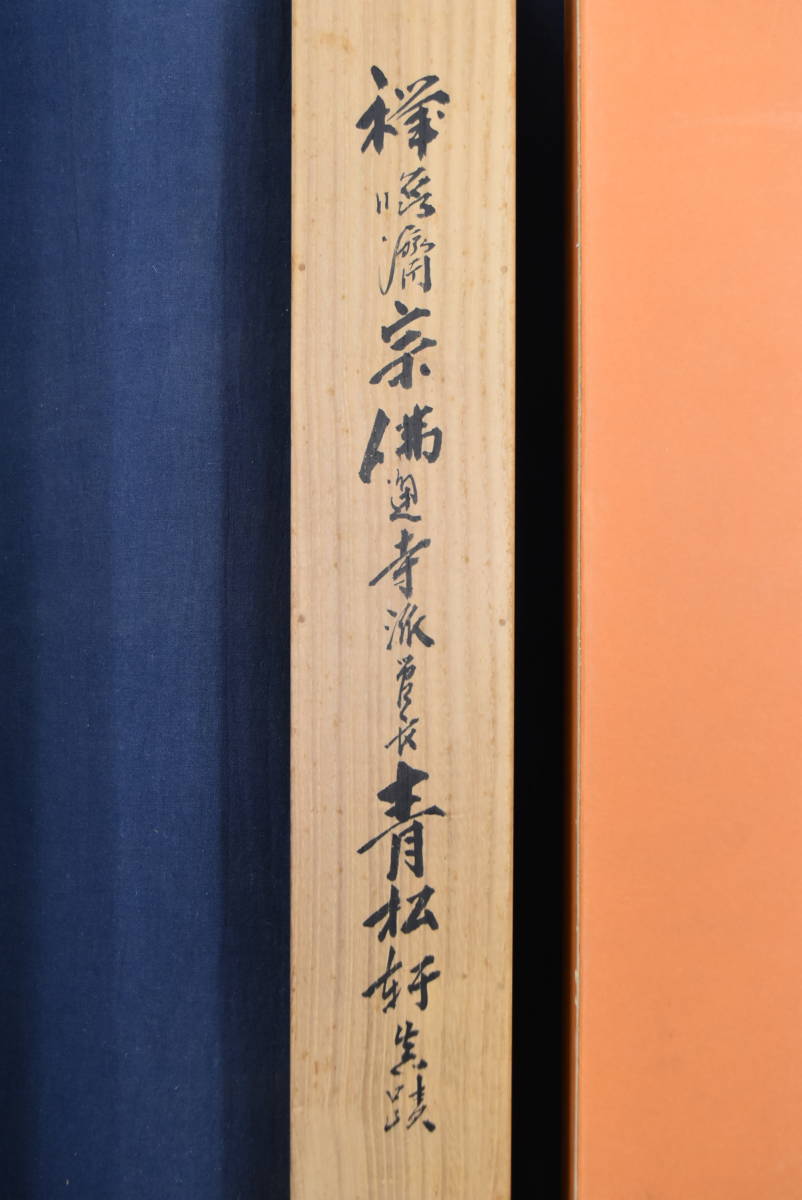 禅臨済宗佛通寺派管長青松軒真蹟